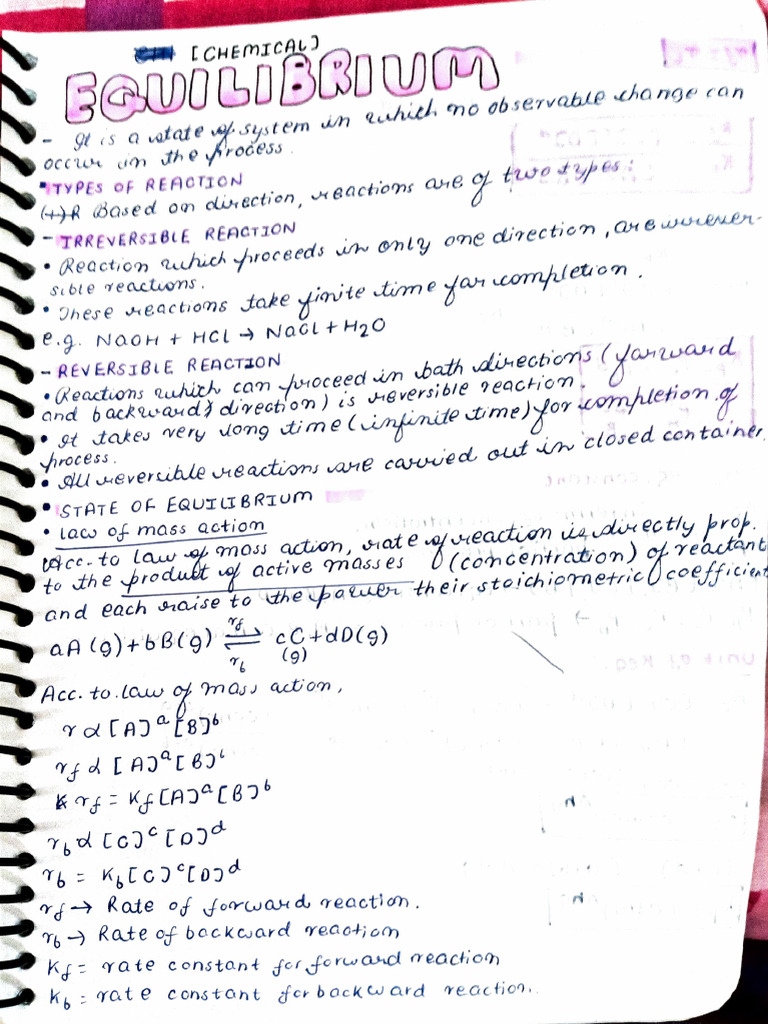 [CHEMICAL]
EQUILIBRIUM
- It is a state of system in which no observable change can
occur in the process.
• TYPES OF REACTION
(+)R Based on direction, reactions are of two types:
- IRREVERSIBLE REACTION
• Reaction which proceeds in only one direction, are irrever-
sible reactions.
• These reactions take finite time for completion.
e.g. NaOH + HCl → NaCl + H2O
- REVERSIBLE REACTION
• Reactions which can proceed in both directions (forward
and backward) direction) is reversible reaction.
• It takes very long time (infinite time) for completion of
process.
• All reversible reactions are carried out in closed container.
• STATE OF EQUILIBRIUM
• law of mass action
Acc. to law of mass action, rate of reaction is directly prop.
to the product of active masses (concentration) of reactant
and each raise to the power their stoichiometric coefficient
rf
aA (g) + bB(g) ⇌ cC + dD(g)
rb (g)
Acc. to law of mass action,
r α [A]ᵃ [B]ᵇ
rf α [A]ᵃ [B]ᵇ
rf = Kf [A]ᵃ [B]ᵇ
rb α [C]ᶜ [D]ᵈ
rb = Kb [C]ᶜ [D]ᵈ
rf → Rate of forward reaction.
rb → Rate of backward reaction
Kf = rate constant for forward reaction
Kb = rate constant for backward reaction.